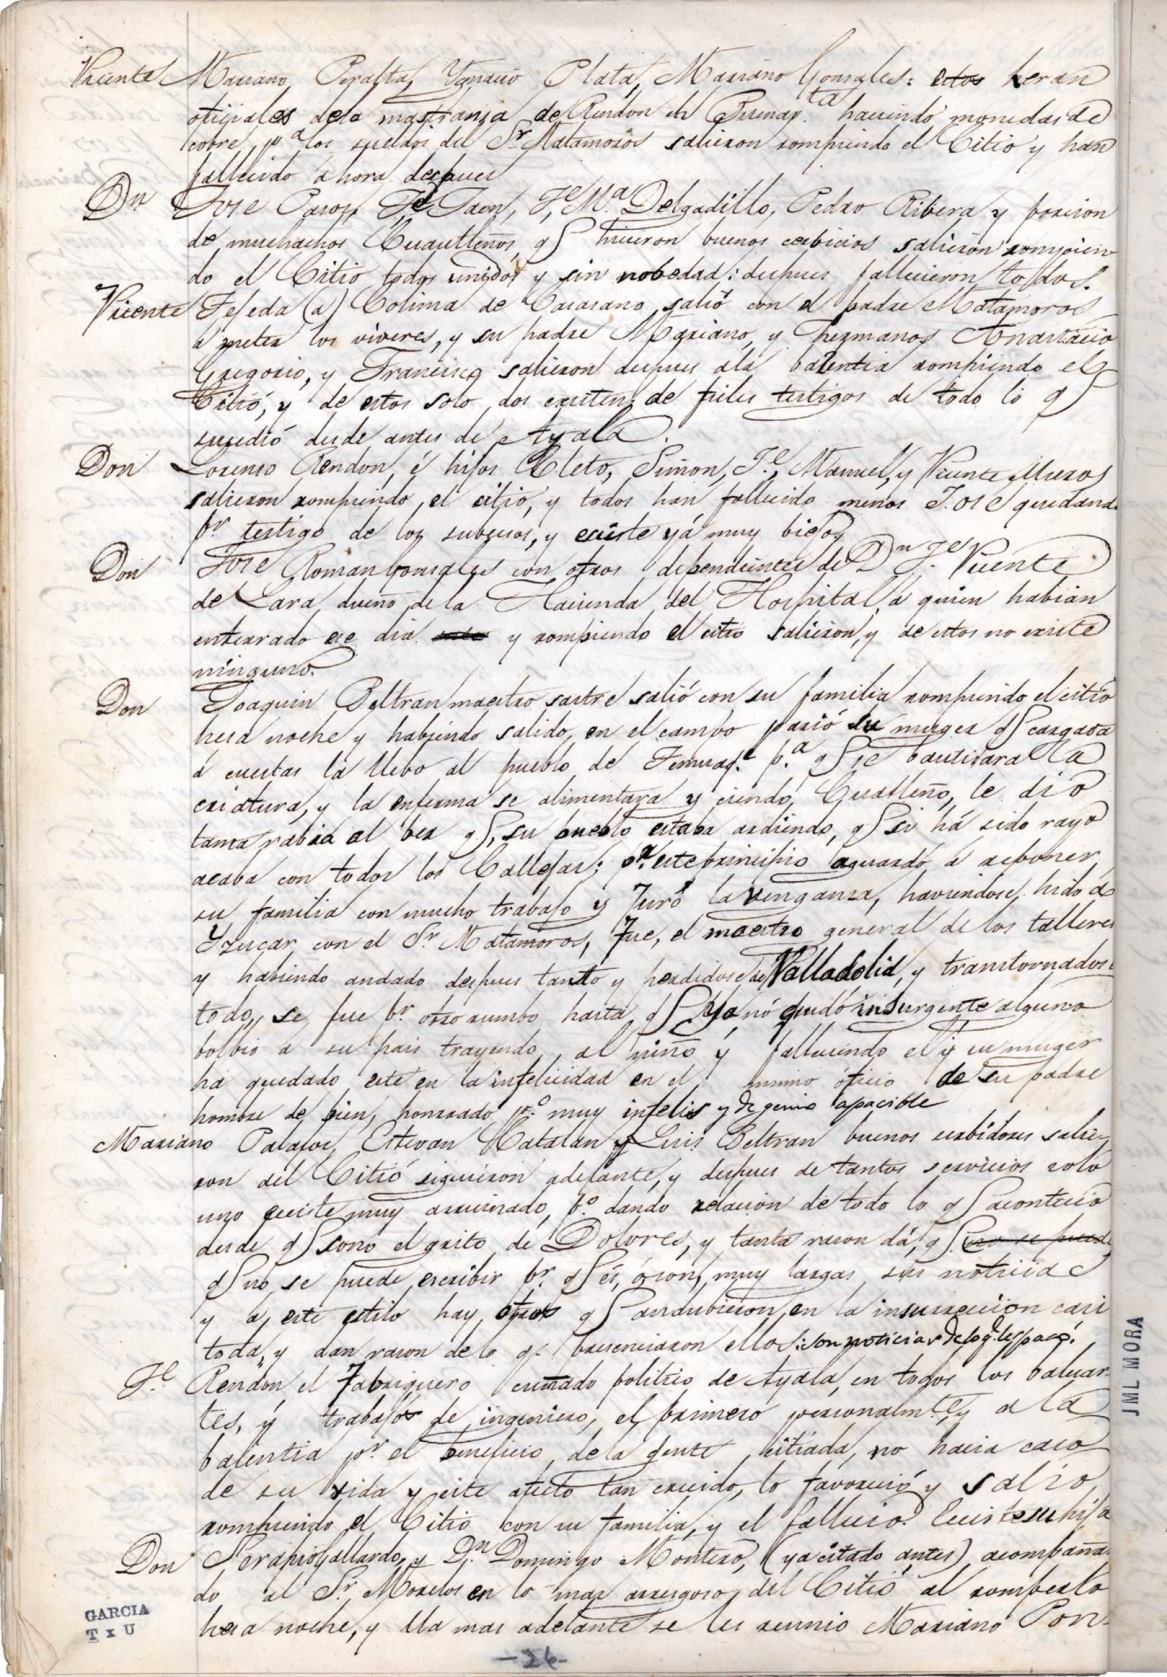 Vicente Mariano Peralta, Ygnacio Plata, Mariano Gonsales: estos heran
oficiales de la mastransa de Rendon en haciendo monedas de
cobre, pª los sueldos del Sr Matamoros salieron rompiendo el Citio y han
fallecido ahora despues
Dn Jose Jé Jaen, Jé Mª Delgadillo, Pedro Ribera y porcion
de muchachos Cuautleños qe hicieron buenos cerbicios salieron rompien
do el Citio todos unidos y sin nobedad: despues fallecieron todos.
Vicente Tejeda (a) Colima de salió con el padre Matamoros
á meter los viveres, y su padre Mariano, y hermanos Anastacio
Gregorio, y Francisco salieron despues ala balentia rompiendo el
Citio, y de estos solo dos ecsisten de fieles testigos de todo lo qe
susedió desde antes de Ayala.
Don Lorenso Rendon, é hijos Cleto, Simon, Jé, Manuel, y Vicente Muzos
salieron rompiendo el citio, y todos han fallecido menos Jose quedando
pr testigo de los subcesos, y eciste yá muy biejo
Don Jose Roman Gonsales con otros dependientes de Dn Jé Vicente
de Lara dueño de la Hacienda del Hospital á quien habian
enterrado ese dia y rompiendo el citio salieron, y de estos no existe
ninguno.
Don Joaquin Beltran maestro sastre salió con su familia rompiendo el citio
hesa noche y habiendo salido, en el campo parió su muger qe cargada
á cuestas la llebo al pueblo de pª qe se bautisara la
criatura, y la enferma se alimentara y ciendo, le dio
tanta rabia al ber qe su pueblo estaba ardiendo, qe si há sido rayo
acaba con todos los Callejas; pr este principio aguardó á reponer
su familia con mucho trabajo y Juró la venganza, haviendose hido á
Yzucar con el Sr Matamoros, Fue, el maestro general de los talleres
y habiendo andado despues tanto y perdidose de Valladolid, y transtornados
todo, se fue pr otro rumbo hasta qe Ya nó quedó insurgente alguno
bolbio á su pais trayendo, al niño y falleciendo el y su muger
ha quedado este en la infelicidad en el mismo oficio de su padre
hombre de bien, honrrado po muy infelis y de genio apacible
Mariano Estevan Catalan y Luis Beltran buenos serbidores salie
ron del Citio siguieron adelante, y despues de tantos servicios solo
uno eciste muy arruinado, po dando relacion de todo lo qe acontecio
desde qe sono el grito de Dolores, y tanta rason dá, qe eso se puede
qe no se puede escribir pr qe és, ó son, muy largas sus noticias
y á este estilo hay otros qe andubieron en la insurreccion casi
toda, y dan rason de lo qe presenciaron ellos: son noticias de lo q. les pasó.
Jé Rendon el Fabriquero cuñado politico de Ayala, en todos los baluar
tes, y trabajos de ingeniero, el primero personalmte, y a la
balentia pr el beneficio de la gente citiada, no hacia caso
de su vida y este afecto tan crecido, lo favoreció y salio,
rompiendo el Citio con su familia, y el fallecio. Eciste su hija
Don Serapio Gallardo, y Dn Domingo Montero, (ya citado antes) acompañan
do al Sr Morelos en lo mas arresgoso del Citio al romperlo
hesa noche, y alla mas adelante se les reunio Mariano Pon-
GARCIA
T x U
-26-
JML MORA